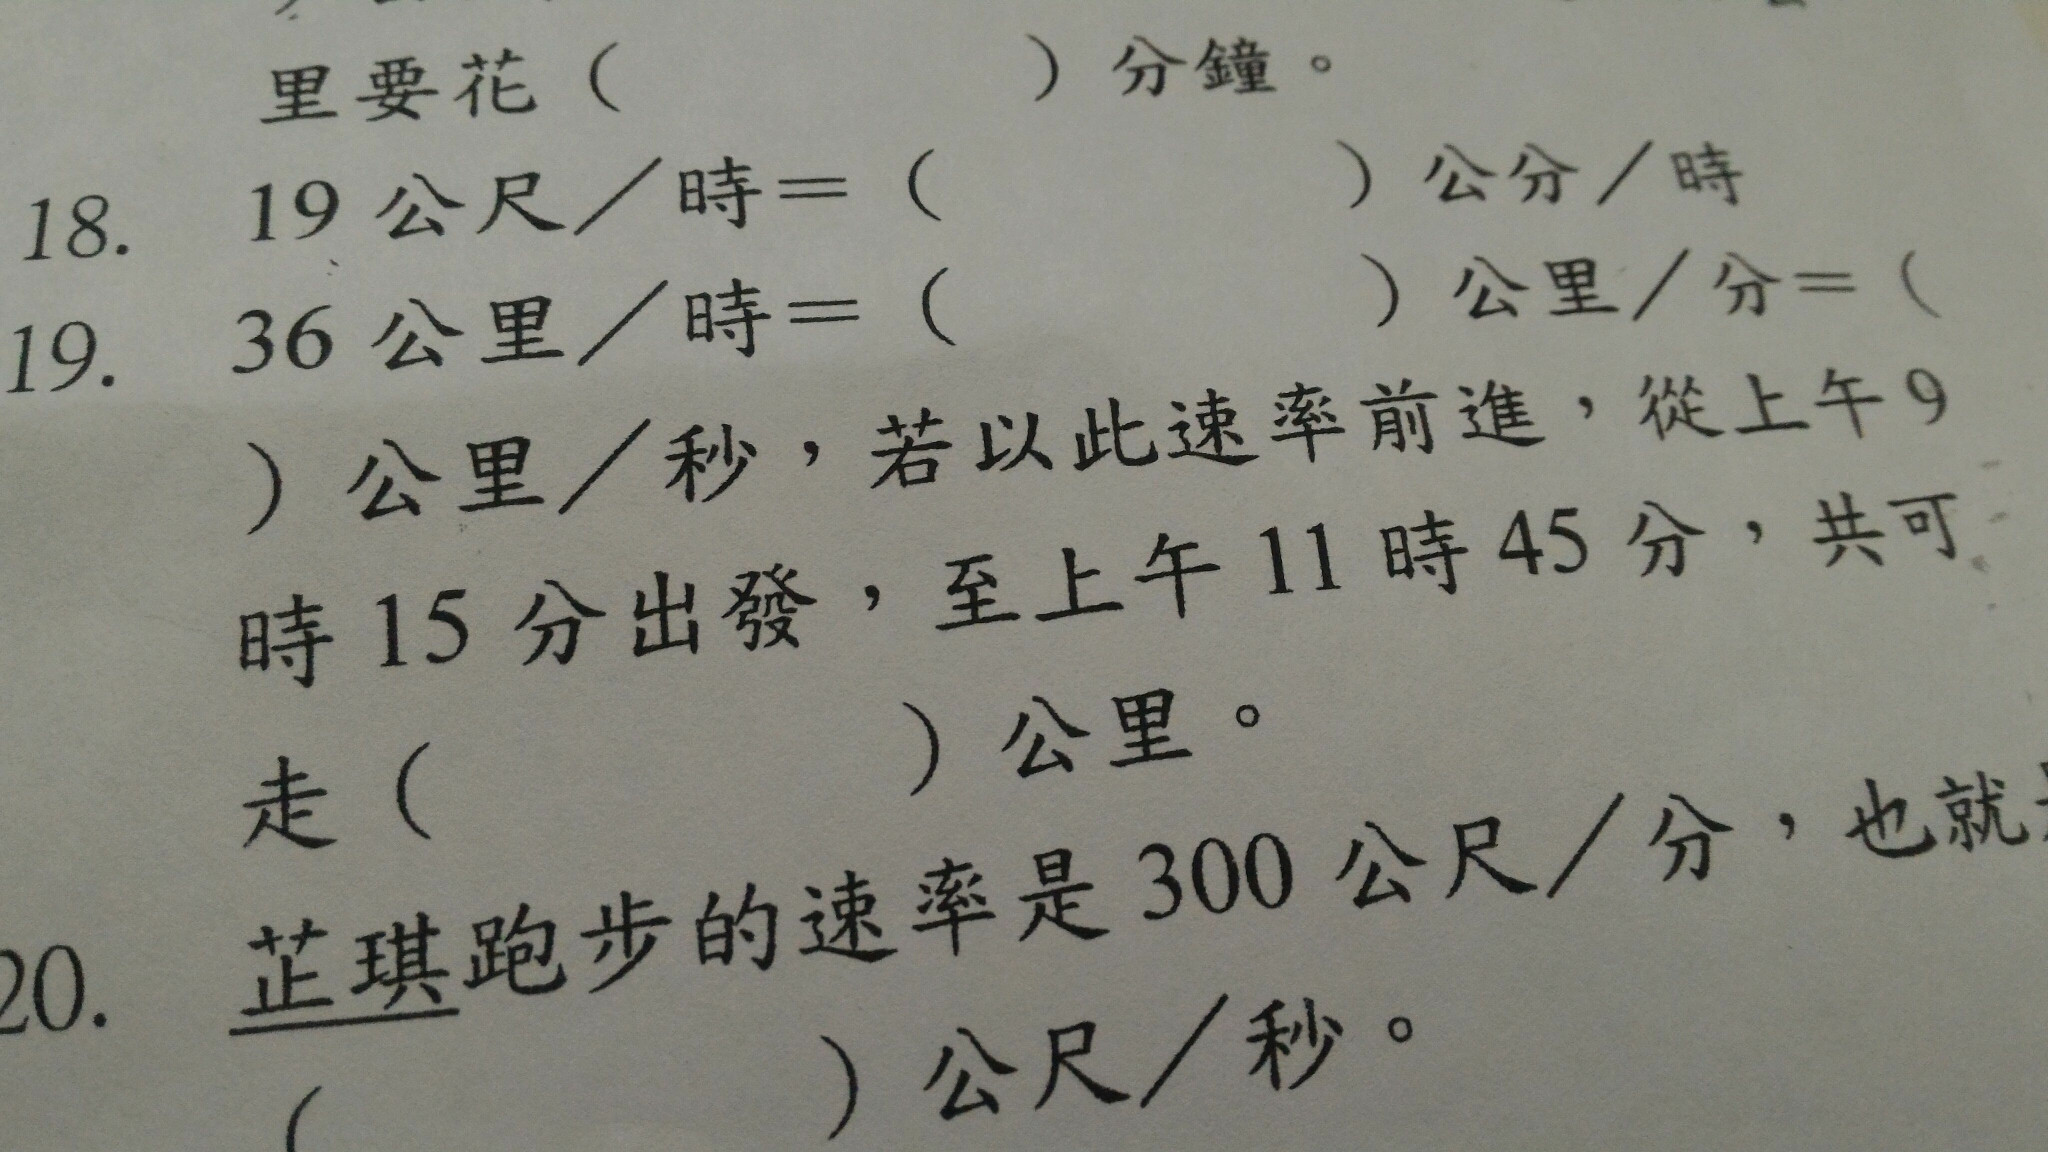 里要花（　　　）分鐘。
18. 19 公尺／時＝（　　　）公分／時
19. 36 公里／時＝（　　　）公里／分＝（
）公里／秒，若以此速率前進，從上午 9
時 15 分出發，至上午 11 時 45 分，共可
走（　　　）公里。
20. 芷琪跑步的速率是 300 公尺／分，也就
（　　　）公尺／秒。